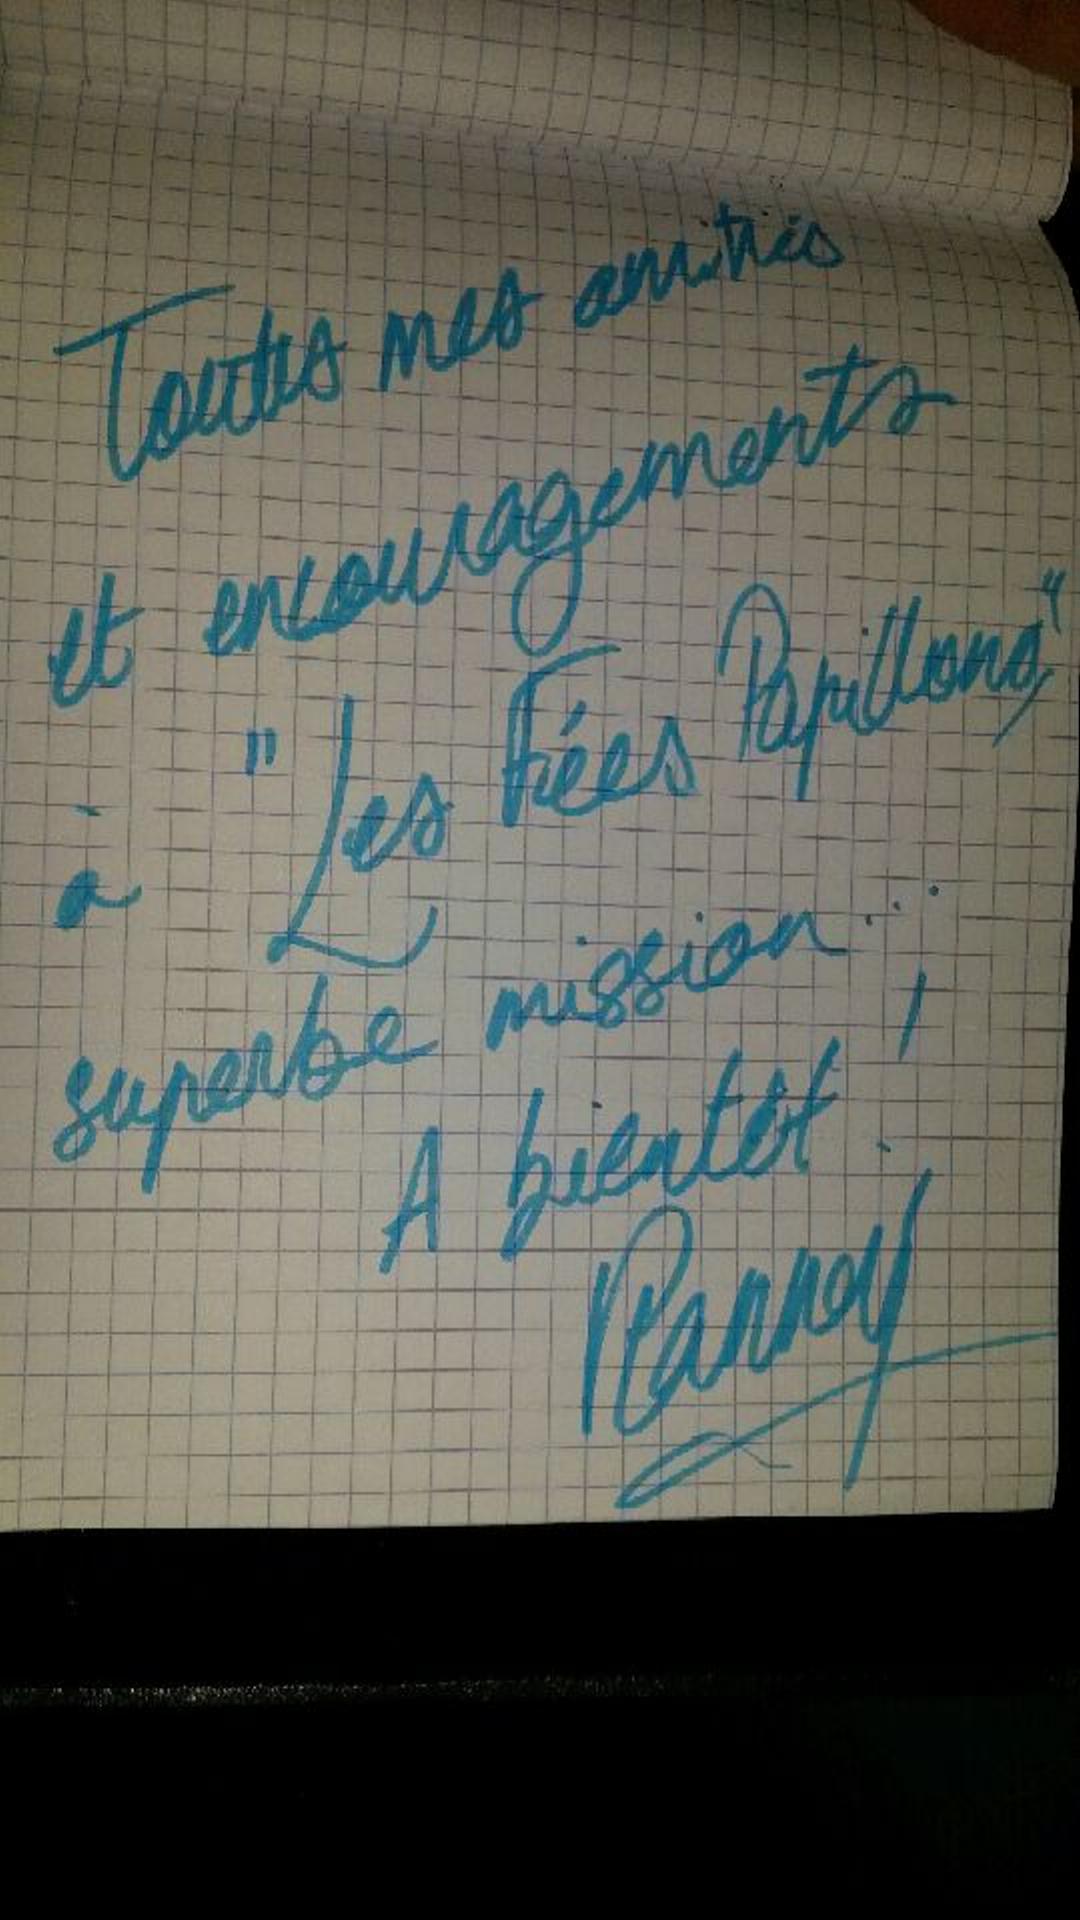 Toutes mes amitiés
et encouragements
à "Les Fées Papillons,"
superbe mission...
A bientôt !